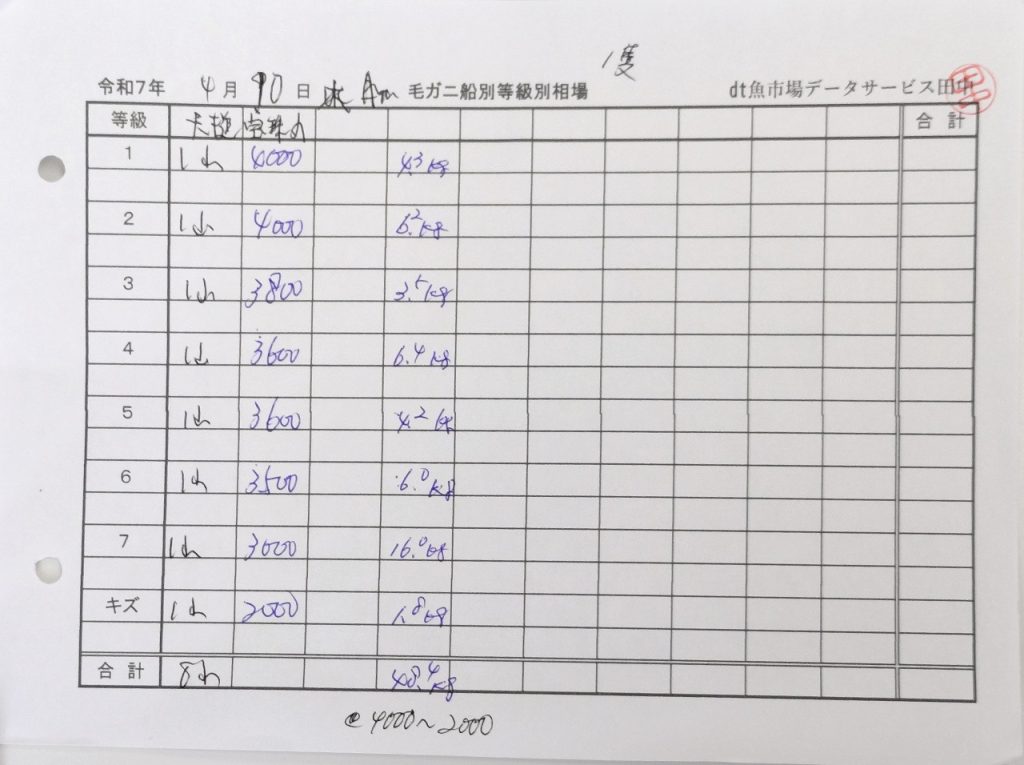 1隻
令和7年 4月 10日 水 Am 毛ガニ船別等級別相場 dt魚市場データサービス田中
等級 合計
1 1山 4000 4.3kg
2 1山 4000 6.2kg
3 1山 3800 3.5kg
4 1山 3600 6.4kg
5 1山 3600 4.2k
6 1山 3500 6.0kg
7 1山 3000 16.0kg
キズ 1山 2000 1.8kg
合計 8山 48.4kg
@4000~2000